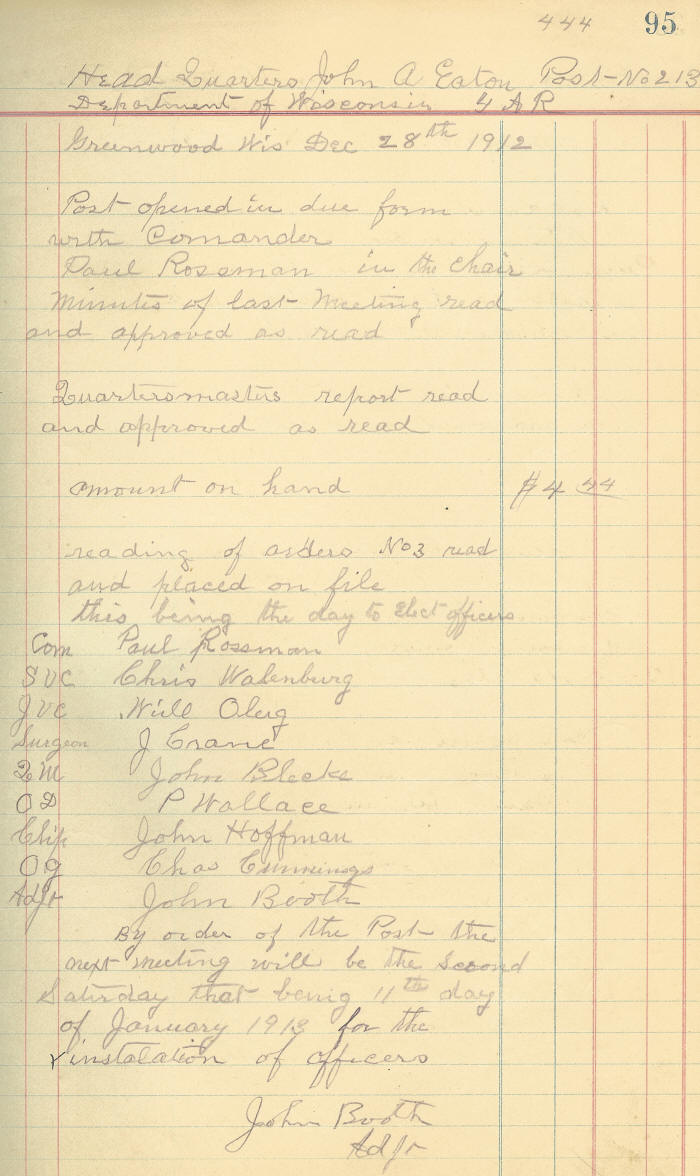 444 95
Head Quarters John A Eaton Post-No 213
Department of Wisconsin G A R
Greenwood Wis Dec 28th 1912
Post opened in due form
with Comander
Paul Rossman in the chair
Minutes of last Meeting read
and approved as read
Quartersmasters report read
and approved as read
amount on hand $4 44
reading of orders No 3 read
and placed on file
this being the day to Elect officers
Com Paul Rossman
SVC Chris Walenburg
JVC Will Oleig
Surgeon J Crane
QM John Blecke
OD P Wallace
Chip John Hoffman
OG Chas Cummings
Adjt John Booth
By order of the Post the
next meeting will be the second
Saturday that being 11th day
of January 1913 for the
instalation of officers
John Booth
Adjt